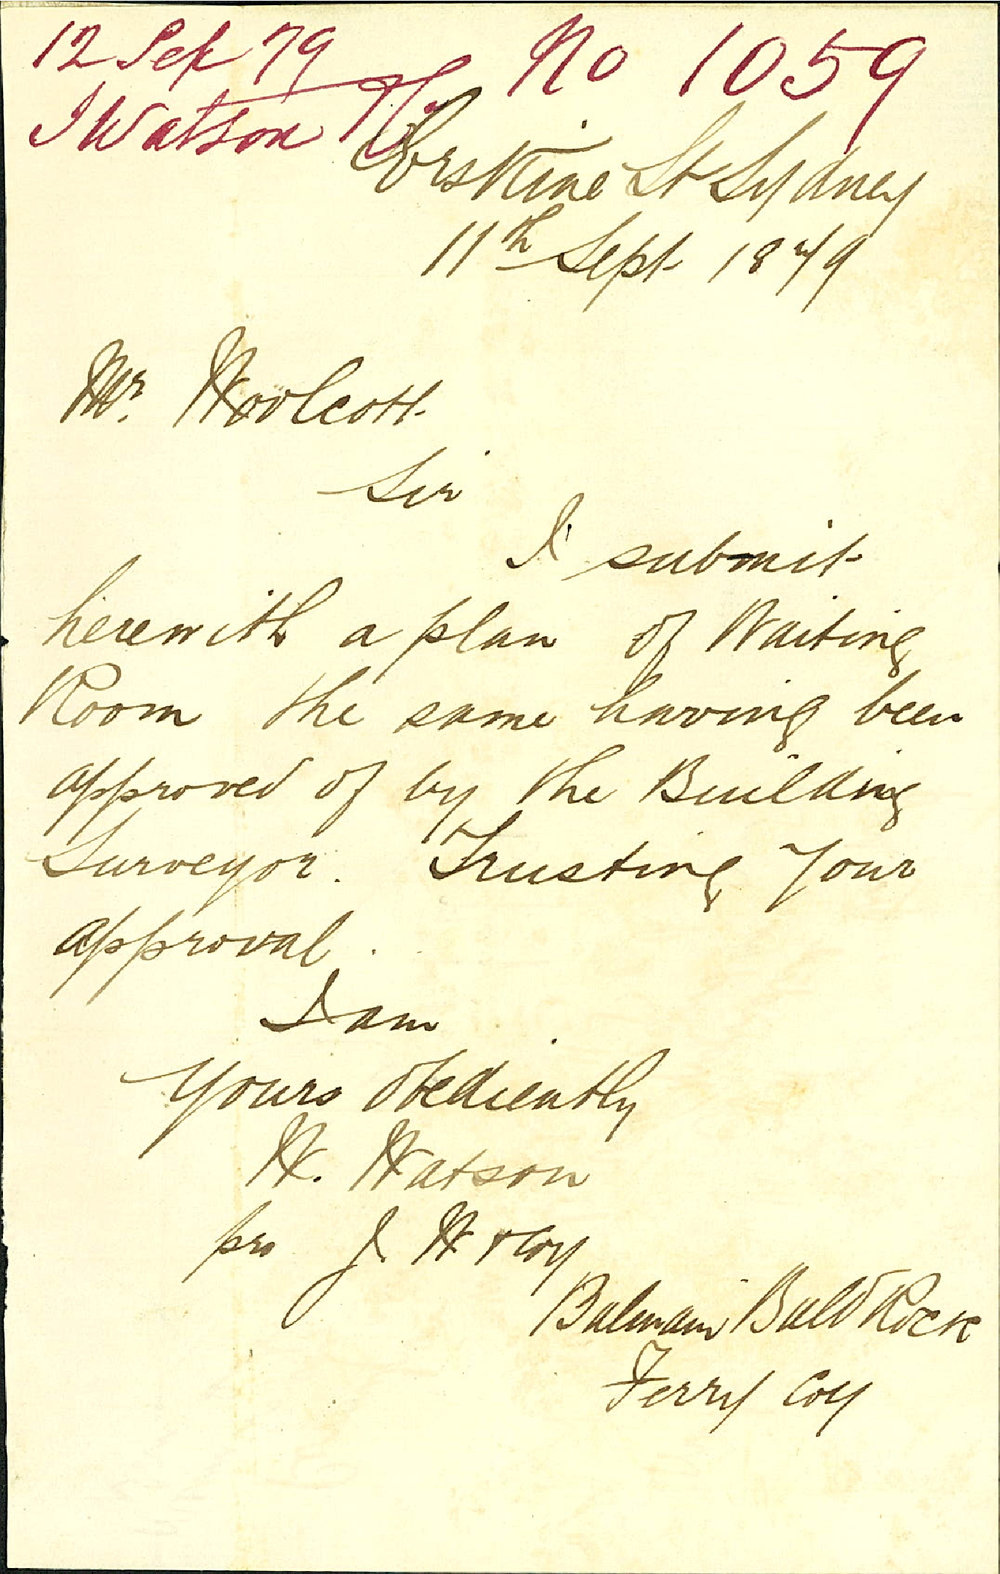 12 Sep 79
No 1059
J Watson
Erskine St Sydney
11th Sept 1879
Mr. Woolcott
Sir
I submit
herewith a plan of Waiting
Room the same having been
approved of by the Building
Surveyor. Trusting your
approval.
I am
Yours obediently
W. Watson
pro J W & Coy
Balmain Bald Rock
Ferry Coy